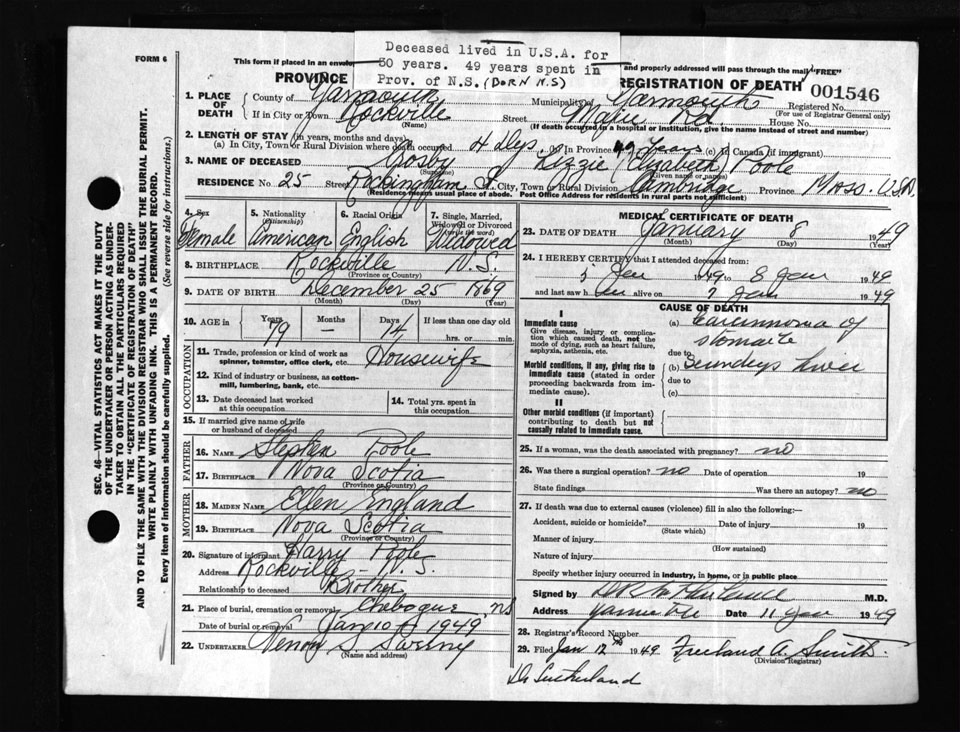 FORM 6
Deceased lived in U.S.A. for
30 years. 49 years spent in
Prov. of N.S. (BORN N.S)
This form if placed in an envelope and properly addressed will pass through the mail "FREE"
PROVINCE REGISTRATION OF DEATH
001546
1. PLACE OF DEATH
County of Yarmouth Municipality of Yarmouth Registered No.
(For use of Registrar General only)
If in City or Town Rockville Street Main Rd House No.
(Name) (If death occurred in a hospital or institution, give the name instead of street and number)
2. LENGTH OF STAY (in years, months and days)
(a) In City, Town or Rural Division where death occurred 4 dys. In Province 49 years (c) in Canada (if immigrant)
3. NAME OF DECEASED Crosby Lizzie (Elizabeth) Poole
(Surname) (Given name or names)
RESIDENCE No. 25 Street Rockingham St. City, Town or Rural Division Cambridge Province Mass. U.S.A.
(Residence means usual place of abode. Post Office Address for residents in rural parts not sufficient)
4. Sex
Female
5. Nationality
(Citizenship)
American
6. Racial Origin
English
7. Single, Married,
Widowed or Divorced
(write the word)
Widowed
8. BIRTHPLACE Rockville N.S.
(Province or Country)
9. DATE OF BIRTH December 25 1869
(Month) (Day) (Year)
10. AGE in Years Months Days If less than one day old
79 – 14 hrs. or min.
OCCUPATION
11. Trade, profession or kind of work as
spinner, teamster, office clerk, etc. Housewife
12. Kind of industry or business, as cotton-
mill, lumbering, bank, etc.
13. Date deceased last worked
at this occupation
14. Total yrs. spent in
this occupation
15. If married give name of wife
or husband of deceased
FATHER
16. NAME Stephen Poole
17. BIRTHPLACE Nova Scotia
(Province or Country)
MOTHER
18. MAIDEN NAME Ellen England
19. BIRTHPLACE Nova Scotia
(Province or Country)
20. Signature of informant Harry Poole
Address Rockville – N.S.
Relationship to deceased Brother
21. Place of burial, cremation or removal Chebogue, N.S
Date of burial or removal Jany 10 1949
22. UNDERTAKER S. Sweeny
(Name and address)
MEDICAL CERTIFICATE OF DEATH
23. DATE OF DEATH January 8 1949
(Month) (Day) (Year)
24. I HEREBY CERTIFY that I attended deceased from:
5 Jan 1949 to 8 Jan 1949
and last saw h alive on 7 Jan 1949
CAUSE OF DEATH
I
Immediate cause
Give disease, injury or complica-
tion which caused death, not the
mode of dying, such as heart failure,
asphyxia, asthenia, etc.
(a) Carcinnoma of
due to
Morbid conditions, if any, giving rise to
immediate cause (stated in order
proceeding backwards from im-
mediate cause).
(b) liver
due to
(c)
II
Other morbid conditions (if important)
contributing to death but not
causally related to immediate cause.
25. If a woman, was the death associated with pregnancy? no
26. Was there a surgical operation? no Date of operation 19
State findings Was there an autopsy? no
27. If death was due to external causes (violence) fill in also the following:—
Accident, suicide or homicide? Date of injury 19
(State which)
Manner of injury
(How sustained)
Nature of injury
Specify whether injury occurred in industry, in home, or in public place
Signed by M.D.
Address Date 11 Jan 1949
28. Registrar's Record Number
29. Filed Jan 12th 1949 Freeland A. Smith
(Division Registrar)
Dr Sutherland
SEC. 46—VITAL STATISTICS ACT MAKES IT THE DUTY
OF THE UNDERTAKER OR PERSON ACTING AS UNDER-
TAKER TO OBTAIN ALL THE PARTICULARS REQUIRED
IN THE "CERTIFICATE OF REGISTRATION OF DEATH"
AND TO FILE THE SAME WITH THE DIVISION REGISTRAR WHO SHALL ISSUE THE BURIAL PERMIT.
WRITE PLAINLY WITH UNFADING INK. THIS IS A PERMANENT RECORD.
Every item of information should be carefully supplied. (See reverse side for instructions.)